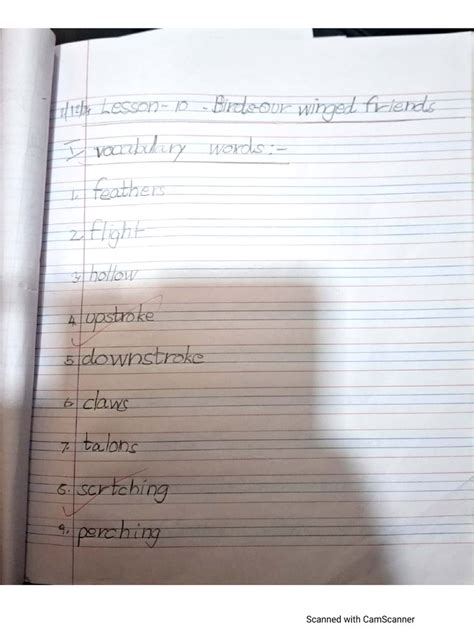 Lesson-10 - Birds-our winged friends
I vocabulary words:-
1. feathers
2. flight
3. hollow
4. upstroke
5. downstroke
6. claws
7. talons
8. scrtching
9. perching
Scanned with CamScanner